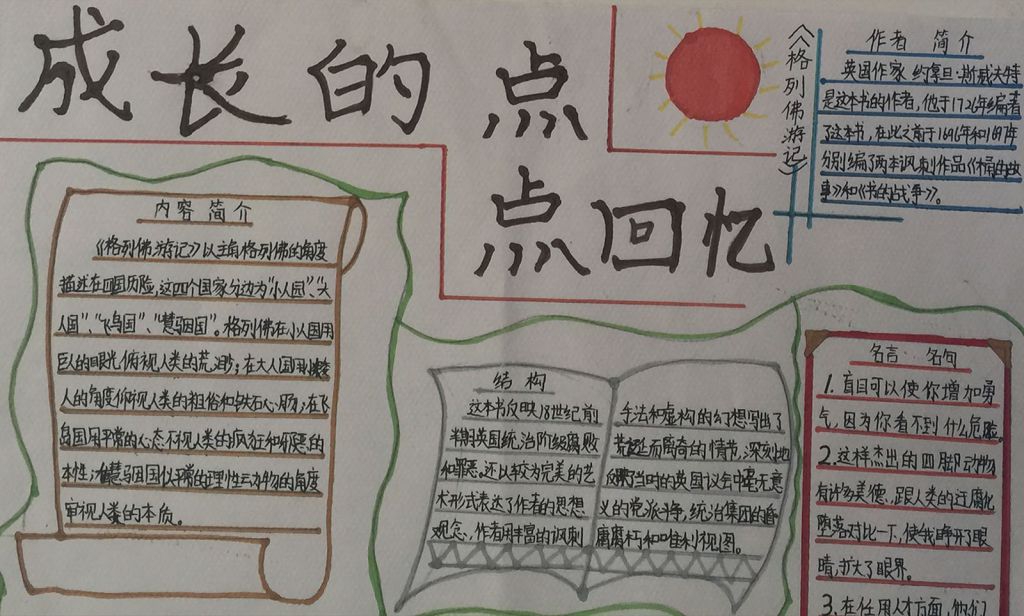 成长的点
点回忆
《格列佛游记》
作者 简介
英国作家 约拿旦·斯威夫特
是这本书的作者,他于1726年编著
了这本书,在此之前于1696年和1697年
分别编了两本讽刺作品《木桶的故
事》和《书的战争》。
内容简介
《格列佛游记》以主角格列佛的角度
描述在四国历险,这四个国家分边为“小人国”、“大
人国”、“飞岛国”、“慧骃国”。格列佛在小人国用
巨人的眼光俯视人类的荒
在大人国用
人的角度仰视人类的粗俗和铁石心肠;在飞
岛国用平常的心态不视人类的疯狂和邪恶的
本性;在慧骃国似乎常的理性动物的角度
审视人类的本质。
结 构
这本书反映18世纪前
半期英国统治阶级腐败
和罪恶。还以较为完美的艺
术形式表达了作者的思想
观念,作者用丰富的讽刺
手法和虚构的幻想写出了
荒诞而离奇的情节,深刻地
反映了当时的英国议会中毫无意
义的党派斗争,统治集团的昏
庸腐朽和唯利视图。
名言 名句
1.盲目可以使你增加勇
气,因为你看不到什么危险。
2.这样杰出的四脚动物
有许多美德,跟人类的迂腐化
堕落对比一下,使我睁开了眼
睛,扩大了眼界。
3.在任用人才方面,他们